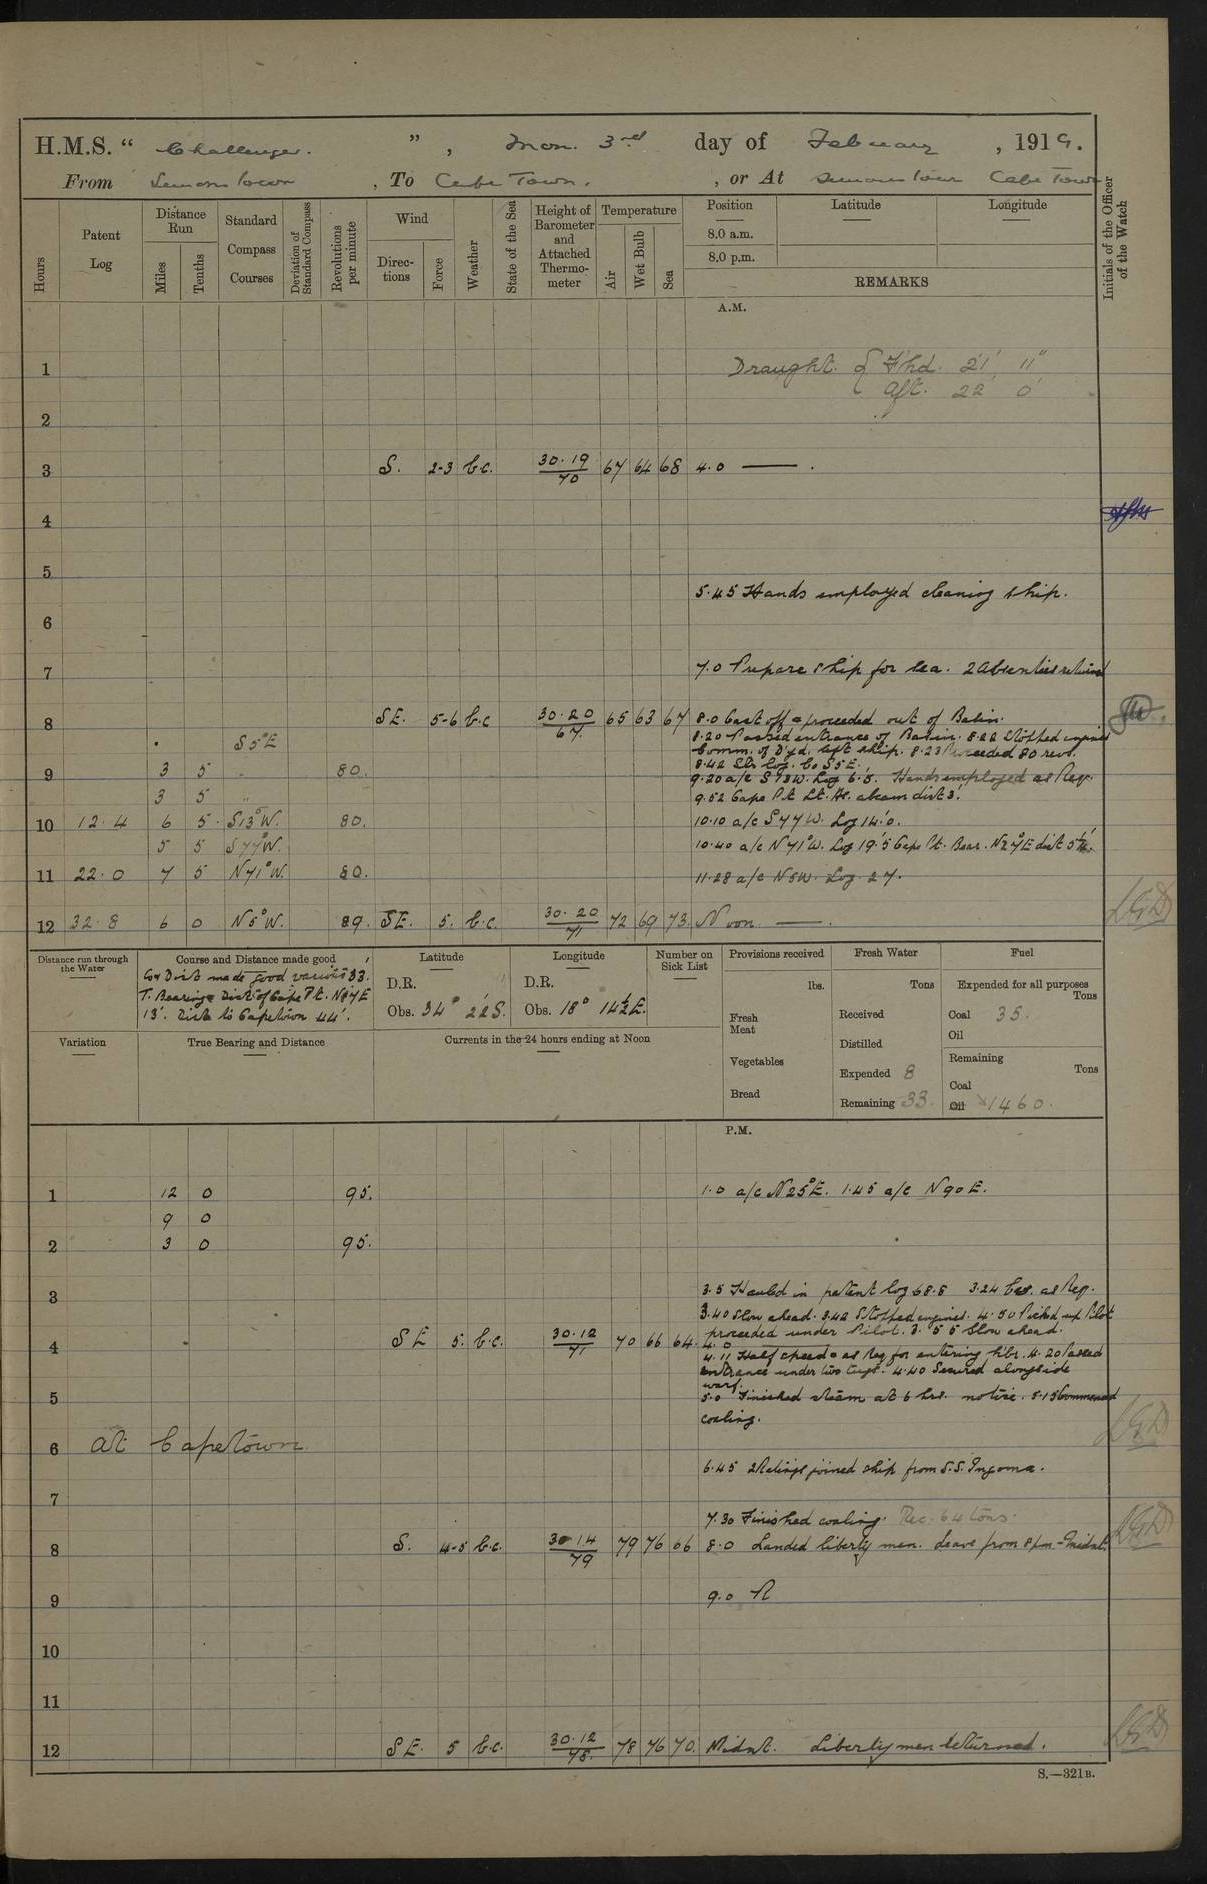 H.M.S. " Challenger. " , Mon. 3rd day of February , 1919.
From Simonstown , To Cape Town. , or At Simonstown Cape Town
Hours
Patent Log
Distance Run
Miles
Tenths
Standard Compass Courses
Deviation of Standard Compass
Revolutions per minute
Wind
Directions
Force
Weather
State of the Sea
Height of Barometer and Attached Thermometer
Temperature
Air
Wet Bulb
Sea
Position
8.0 a.m.
8.0 p.m.
Latitude
Longitude
REMARKS
Initials of the Officer of the Watch
A.M.
1 Draught. { F'hd. 21' 11"
Aft. 22' 0"
2
3 S. 2-3 b.c. 30.19/70 67 64 68 4.0 —— .
4
5
5.45 Hands employed cleaning ship.
6
7 7.0 Prepare ship for sea. 2 Absentees returned
8 SE. 5-6 b.c 30.20/67. 65 63 67 8.0 Cast off & proceeded out of Basin.
S5°E 8.20 Passed entrance of Basin. 8.22 Stopped engines
Comm. of D'yd. left ship. 8.23 Proceeded 80 revs.
8.42 Set log. Co S5E.
9 3 5 80. 9.20 a/c S13W. Log 6.5. Hands employed as Req.
3 5 " 9.52 Cape Pt. Lt. Ho. abeam dist 3'.
10 12.4 6 5 S13°W. 80. 10.10 a/c S77W. Log 14.0.
5 5 S77°W. 10.40 a/c N71°W. Log 19.5 Cape Pt. Bear. N27°E dist
11 22.0 7 5 N71°W. 80. 11.28 a/c N5W. Log 27.
12 32.8 6 0 N5°W. 89. SE. 5. b.c. 30.20/71 72 69 73. Noon. —— .
Distance run through the Water
Course and Distance made good
Co & Dist made good various 33.
T. Bearing & Dist of Cape Pt.
13'. Dist to Capetown 44'.
Latitude
D.R.
Obs. 34° 22'S.
Longitude
D.R.
Obs. 18° 14½'E.
Number on Sick List
Provisions received
lbs.
Fresh Meat
Vegetables
Bread
Fresh Water
Tons
Received
Distilled
Expended 8
Remaining 33.
Fuel
Expended for all purposes
Tons
Coal 35.
Oil
Remaining
Tons
Coal
Oil 1460.
Variation
True Bearing and Distance
Currents in the 24 hours ending at Noon
P.M.
1 12 0 95. 1.0 a/c N25°E. 1.45 a/c N90E.
9 0
2 3 0 95.
3 3.5 Hauled in patent log 68.8 3.24 Co. as Req.
3.40 Slow ahead. 3.42 Stopped engines. 4.50 Picked up Pilot
proceeded under Pilot. 3.55 Slow ahead.
4 SE 5. b.c. 30.12/71 70 66 64. 4.0
4.11 Half speed & as Req for entering hbr. 4.20 Passed
entrance under two tugs. 4.40 Secured alongside
warf.
5 5.0 Finished steam at 6 hrs. notice. 5.15 Commenced
coaling.
6 At Capetown.
6.45 2 Ratings joined ship from S.S. Ingoma.
7
7.30 Finished coaling. Rec. 64 tons.
8 S. 4-5 b.c. 30.14/79 79 76 66 8.0 Landed liberty men. Leave from 8pm - Midnt.
9 9.0 R
10
11
12 SE. 5 b.c. 30.12/78. 78 76 70. Midnt. Liberty men returned.
S.—321B.